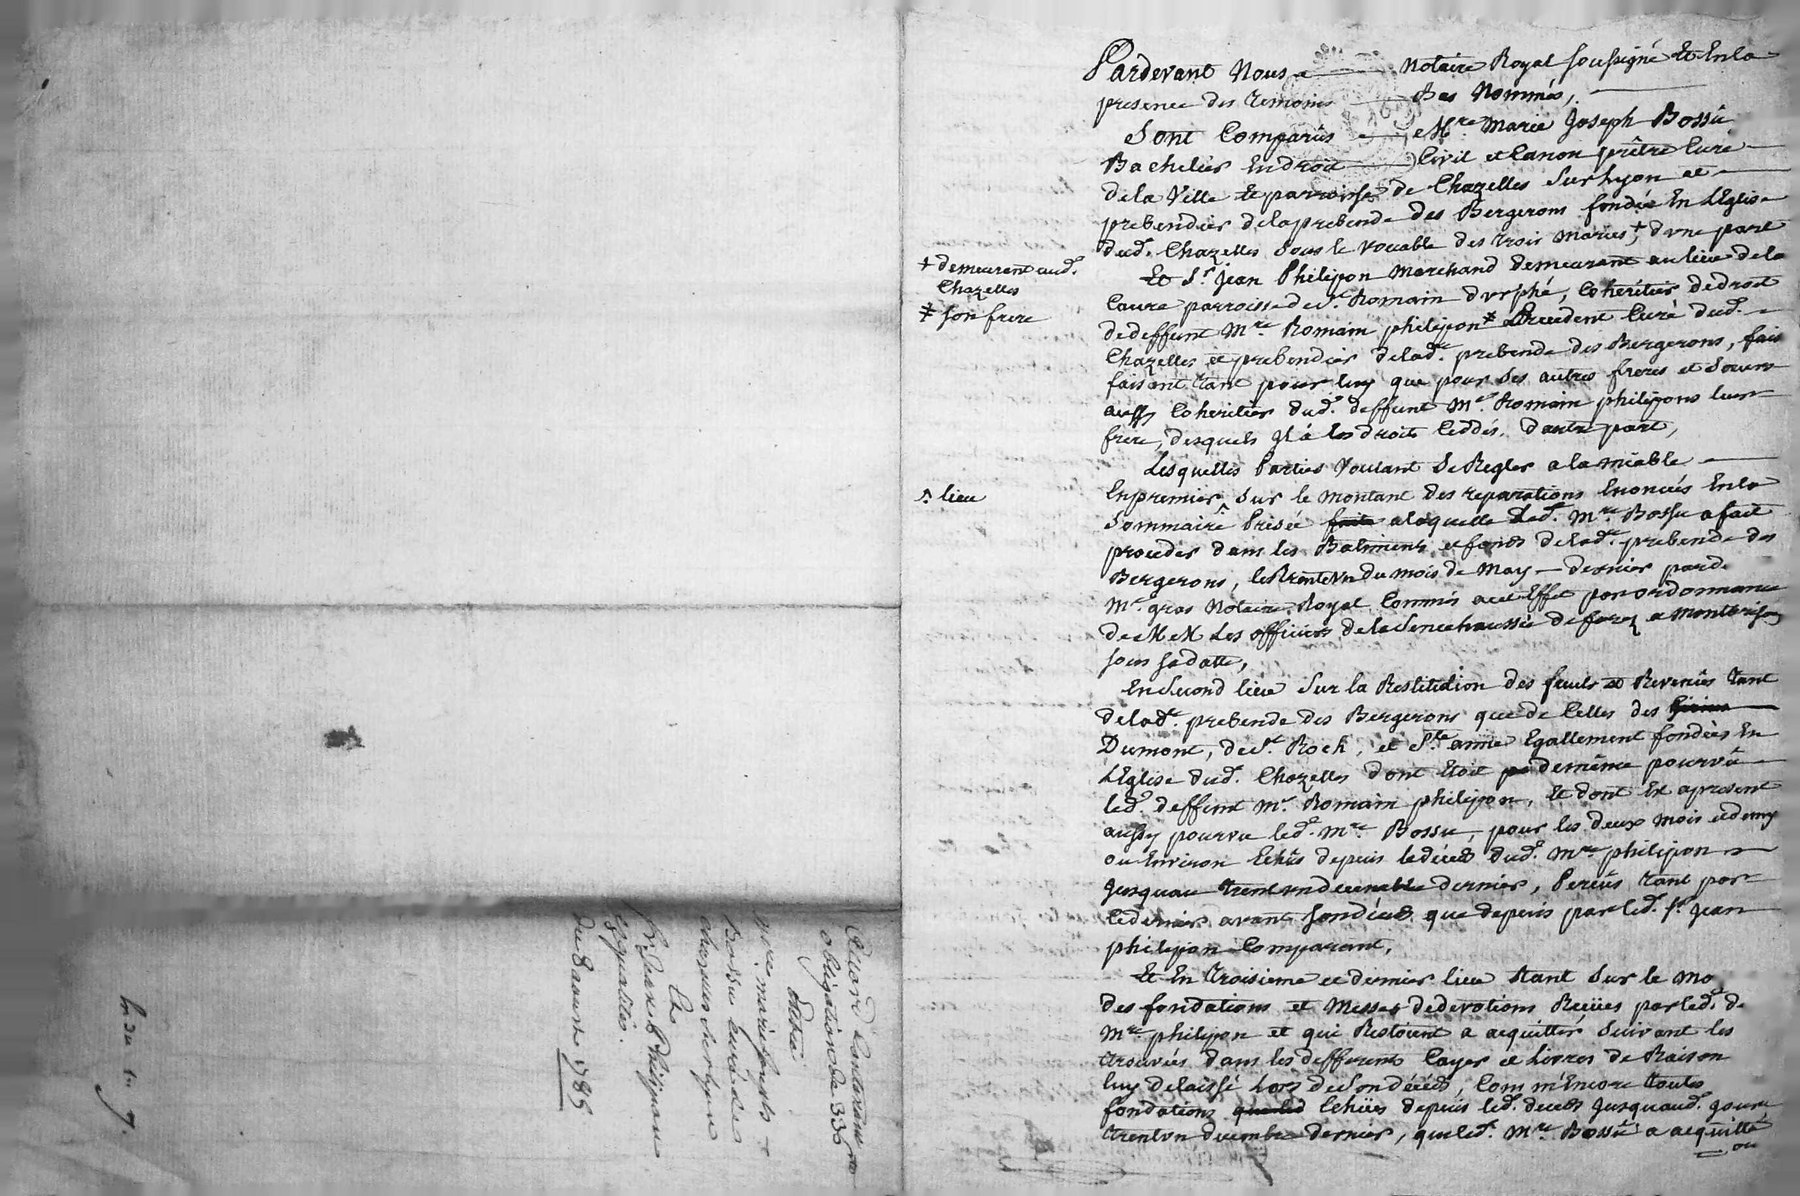 Pardevant Nous Notaire Royal soussigné Et Enla
presence des temoins Bas Nommés,
Sont Comparûs Mre. Marie Joseph Bossû
Bachelier En droit Civil et Canon prêtre Curé
dela Ville et parroisse de Chazelles Sur Lyon et
prebendier dela prebende des Bergerons fondée En L'Eglise
dud. Chazelles Sous le vocable des trois Maries,+ d'vne part
+ demeurant aud.
Chazelles
Et Sr. Jean Philipon Marchand demeurant au lieu dela
Caure parroisse de St. Romain d'vrphé, Coheritier de droit
‡ son frere
dedeffunt Mre. Romain philipon ‡ Precedent Curé dud.
Chazelles et prebendier delade. prebende des Bergerons, fais
faisant tant pour luy que pour Ses autres freres et Soeurs
aussy Coheritiers dud. deffunt Mre. Romain philipons leur
frere, desquels Il a les droits Ceddés, d'autre part,
Lesquelles Parties Voulant Se Regler a lamiable
^ lieu
En premier ^ Sur le montant des reparations Enoncés Enla
Sommaire Prisée faite a laquelle Led. Mre. Bossu a fait
proceder dans les Batiments et fonds delade. prebende des
Bergerons, le trente vn du mois de May dernier par de
Mre. gros Notaire Royal Commis a cet Effet par ordonnance
de M M Les officiers dela Senechaussée de forez a Montbrison
sous sa datte,
En Second lieu Sur la Restitution des fruits et Revenûs tant
delade. prebende des Bergerons que de Celles des
Dumont, de St. Roch, et Ste. anne Egallement fondées En
L'Eglise dud. Chazelles dont Etoit demême pourvû
led. deffunt Mre. Romain philipon, Et dont Est apresent
aussy pourvu led. Mre. Bossu, pour les deux mois et demy
ou Environ Echûs depuis le décéd dud. Mre. philipon
Jusquau trent vn decembre dernier, Percûs tant par
cedernier avant son décéd que depuis par led. Sr. Jean
philipon Comparant,
Et En troisieme et dernier lieu tant Sur le mo
des fondations et Messes dedevotions Recües par led. de
Mre. philipon et qui Restoient a acquitter Suivant les
trouvées dans les differents Cayers et Livres de Raison
luy delaissé Lors de Son décéd, Comm'Encore toutes
fondations Echües depuis led. decéd Jusquaud. jour
trent vn decembre dernier, que led. Mre. Bossû a acquitté
ou
obligation de 336
mre. marie joseph
Bossu curé de
chazelles sur lyon
Sr. Jean Philippon
du 8 aoust 1785